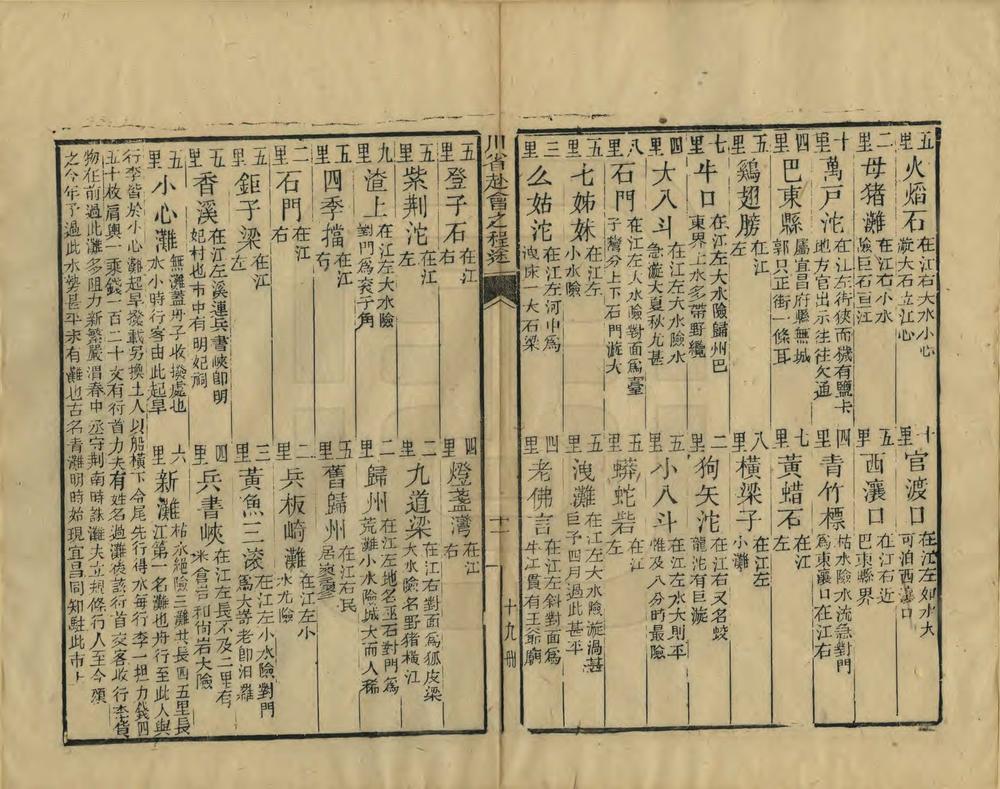 五里 火焰石 在江右大水小心漩大石立江心
十里 官渡口 在江左如水大可泊西瀼口
二里 母猪灘 在江右小水險巨石亘江
五里 西瀼口 在江右近巴東縣界
十里 萬戶沱 在江左街狹而穢有鹽卡地方官出示往往欠通
四里 青竹標 枯水險水流急對門爲東瀼口在江右
四里 巴東縣 屬宜昌府縣無城郭只正街一條耳
七里 黃蜡石 在江左
五里 鷄翅膀 在江左
八里 橫梁子 在江左小灘
七里 牛口 在江左大水險歸州巴東界上水多帶野纜
二里 狗矢沱 在江右又名蛟龍沱有漩
四里 大八斗 在江左大水險水急漩大夏秋尤甚
五里 小八斗 在江左水大則平惟及八分時最險
八里 石門 在江左人水險對面爲臺子灣分上下石門漩大
五里 蟒蛇砦 在江左
五里 七姊妹 在江左小水險
五里 洩灘 在江左大水險漩渦甚巨予四月過此甚平
三里 么姑沱 在江左河中爲洩床一大石梁
四里 老佛言 在江左斜對面爲牛江貫有王爺廟
川省赴會之程途 十二 十九冊
五里 登子石 在江右
四里 燈盞灣 在江右
五里 紫荆沱 在江左
二里 九道梁 在江右對面爲狐皮梁大水險名野猪橫江
九里 渣上 在江左大水險對門爲衮子角
二里 歸州 在江左地名巫石對門爲荒灘小水險城大而人稀
五里 四季擋 在江右
五里 舊歸州 在江右民居寥寥
二里 石門 在江右
二里 兵板崎灘 在江左小水尤險
五里 鉅子梁 在江左
三里 黃魚三滚 在江左小水險對門爲大嵜老即泪灘
五里 香溪 在江左溪連兵書峽即明妃村也市中有明妃祠
四里 兵書峽 在江左長不及二里有米倉岩和尚岩大險
五里 小心灘 無灘蓋舟子收撿處也水小時行客由此起旱
六里 新灘 枯水絕險三灘共長四五里長江第一名灘也舟行至此人與
行李皆於小心灘起旱撥載另換土人以船橫下令尾先行得水每行李一担力錢四
五十枚肩輿一乘錢一百二十文有行首力夫有姓名過灘後該行首交客收行李貨
物在前過此灘多阻力新繁嚴渭春中丞守荆南時誅灘夫立規條行人至今頌
之今年予過此水勢甚平未有灘也古名青灘明時始現宜昌同知駐此市上